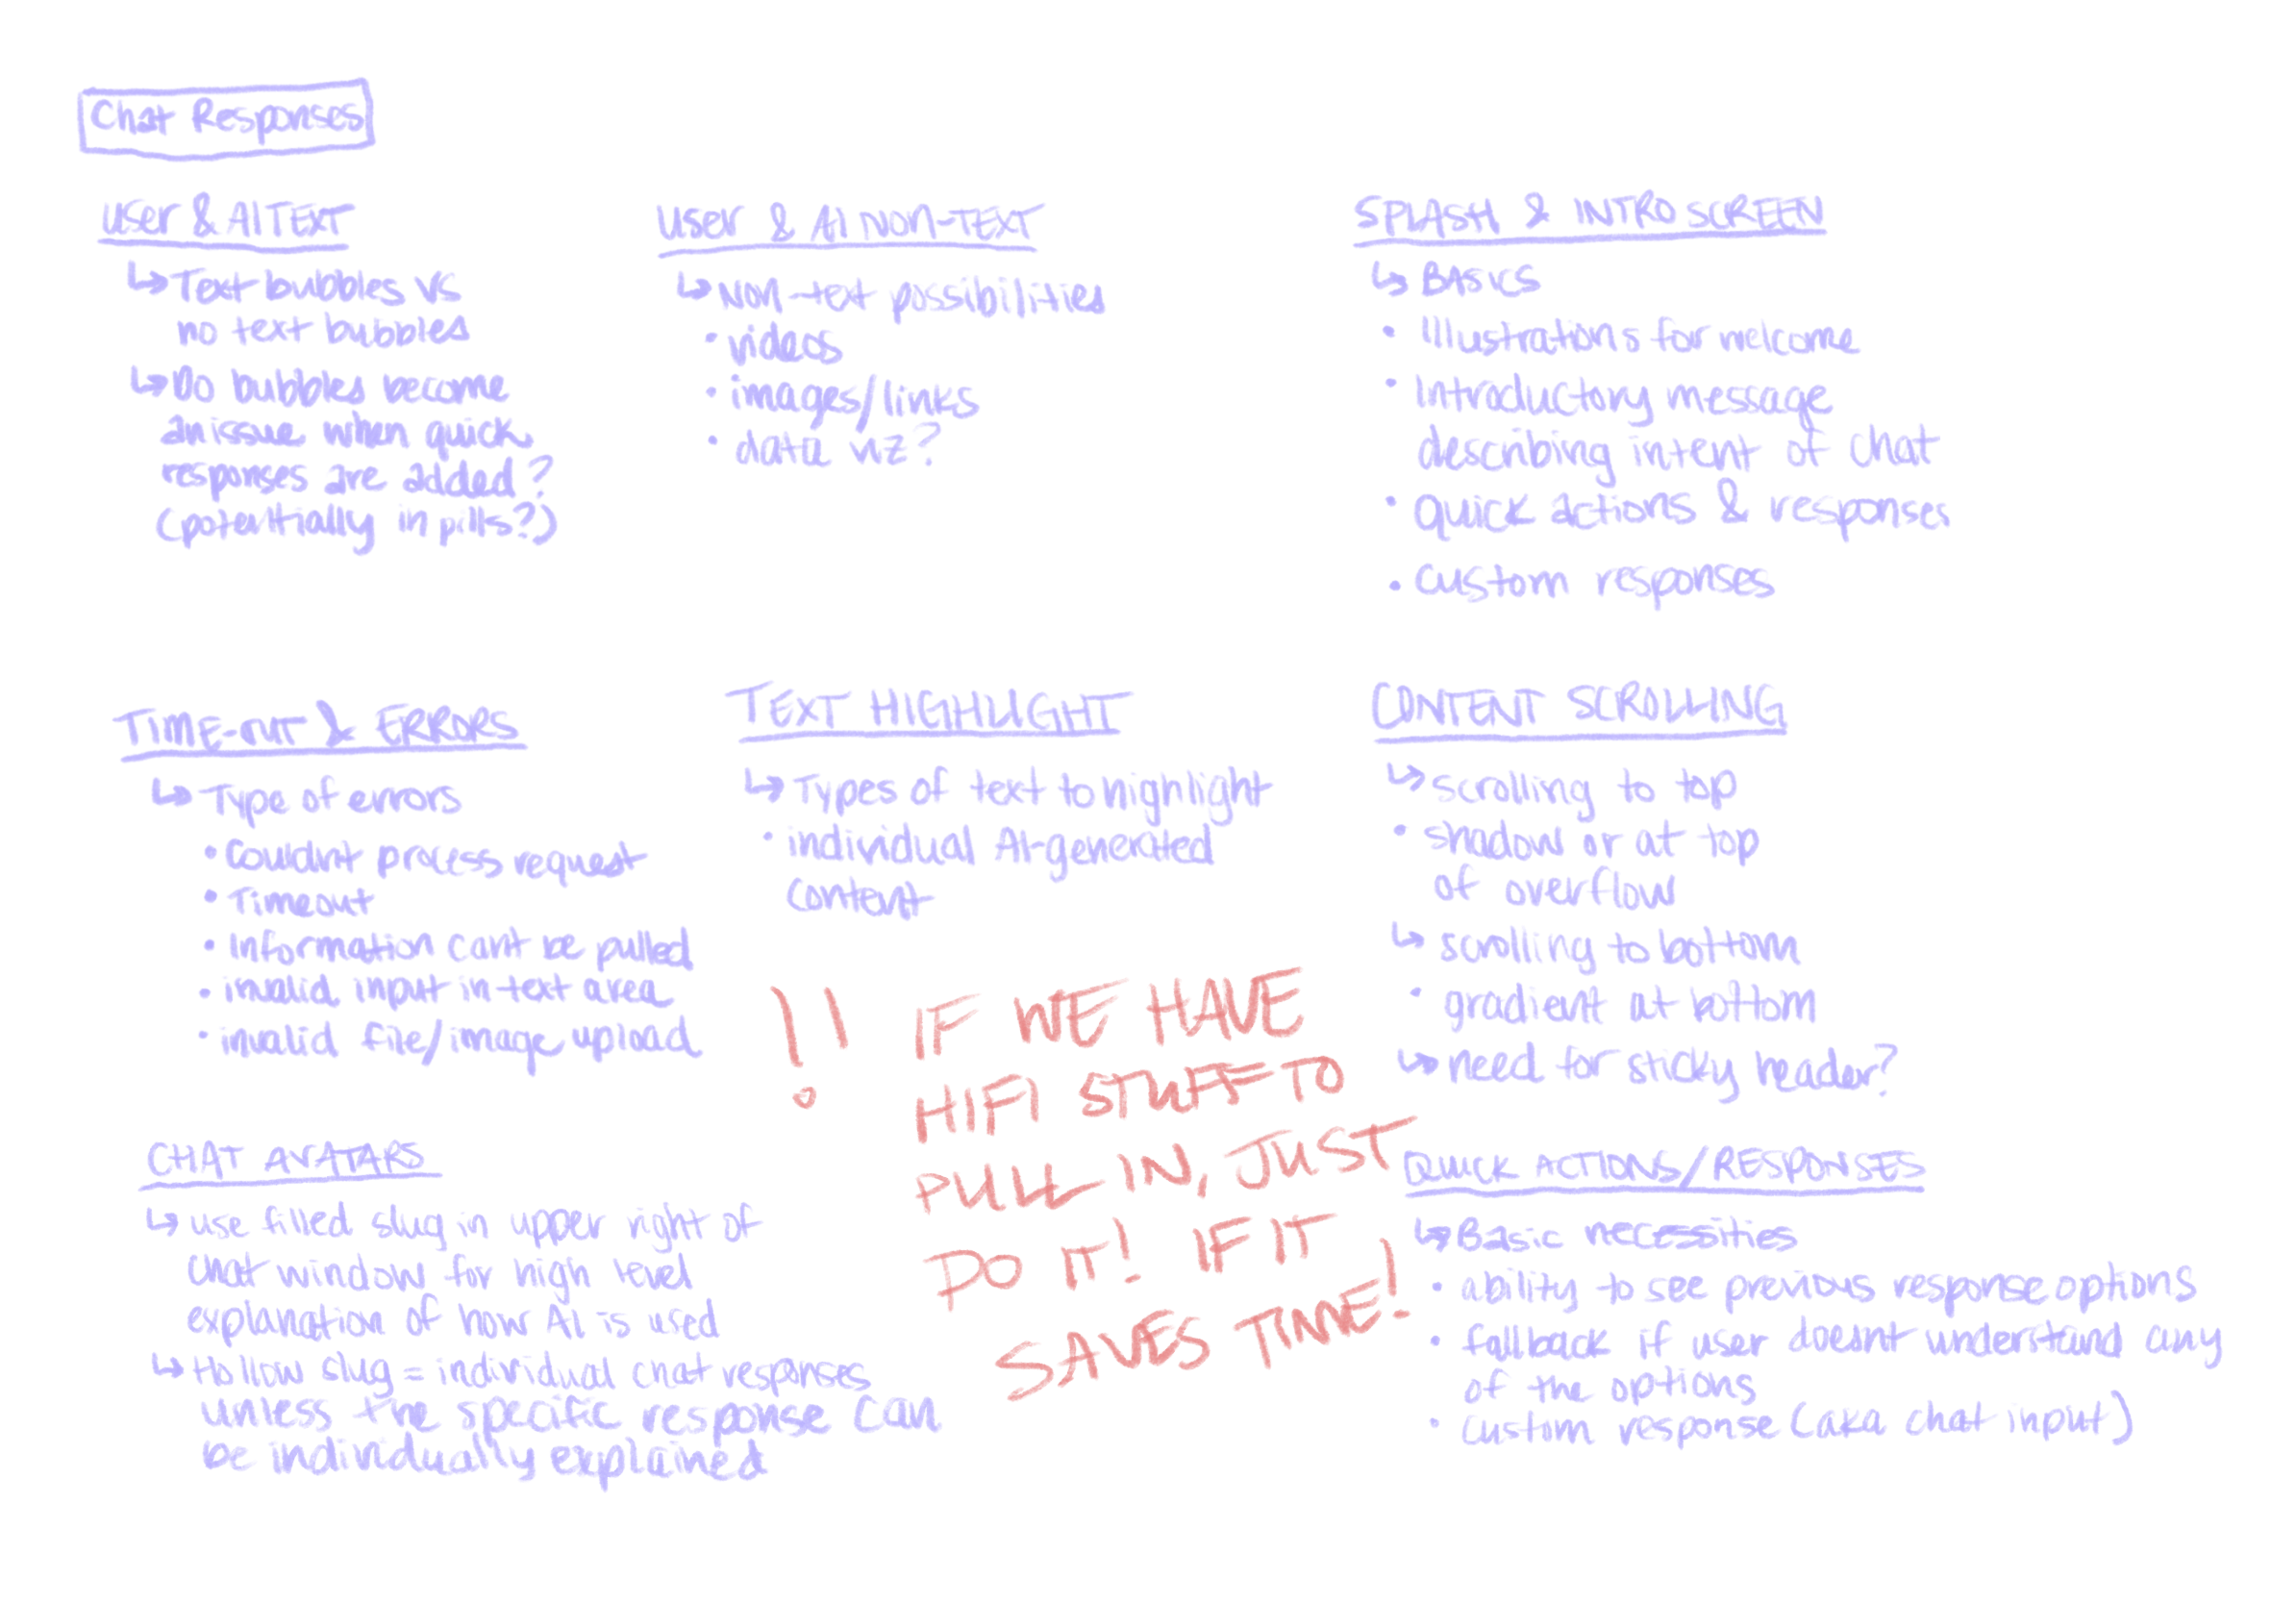 Chat Responses
User & AI TEXT
↳ Text bubbles vs
no text bubbles
↳ Do bubbles become
an issue when quick
responses are added?
(potentially in pills?)
User & AI NON-TEXT
↳ Non-text possibilities
• videos
• images/links
• data viz?
SPLASH & INTRO SCREEN
↳ BASICS
• Illustrations for welcome
• Introductory message
describing intent of chat
• Quick actions & responses
• custom responses
TIME-OUT & ERRORS
↳ Type of errors
• Couldnt process request
• Timeout
• Information cant be pulled
• invalid input in text area
• invalid file/image upload
TEXT HIGHLIGHT
↳ Types of text to highlight
• individual AI-generated
content
CONTENT SCROLLING
↳ scrolling to top
• shadow or at top
of overflow
↳ scrolling to bottom
• gradient at bottom
↳ need for sticky header?
!! IF WE HAVE
HIFI STUFF TO
PULL IN, JUST
DO IT! IF IT
SAVES TIME!
CHAT AVATARS
↳ use filled slug in upper right of
chat window for high level
explanation of how AI is used
↳ Hollow slug = individual chat responses
unless the specific response can
be individually explained
QUICK ACTIONS/RESPONSES
↳ Basic necessities
• ability to see previous response options
• fallback if user doesnt understand any
of the options
• custom response (aka chat input)